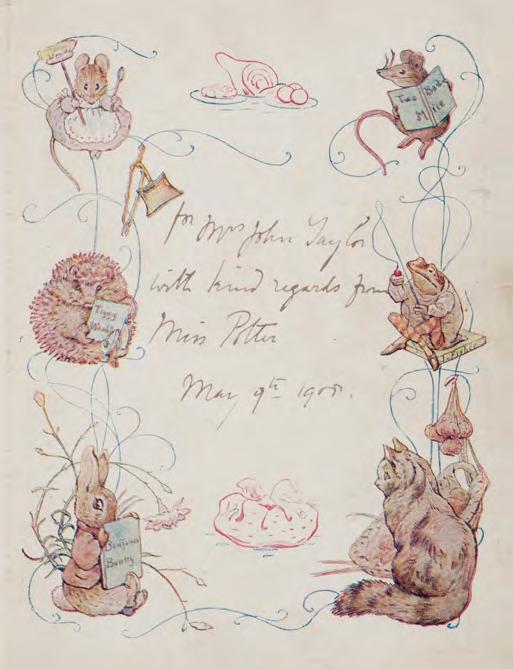 Two Bad
Mice
for Mrs John Taylor
with kind regards from
Miss Potter
May 9th 1908.
Tiggy
Winkle
J. Fisher
Benjamin
Bunny